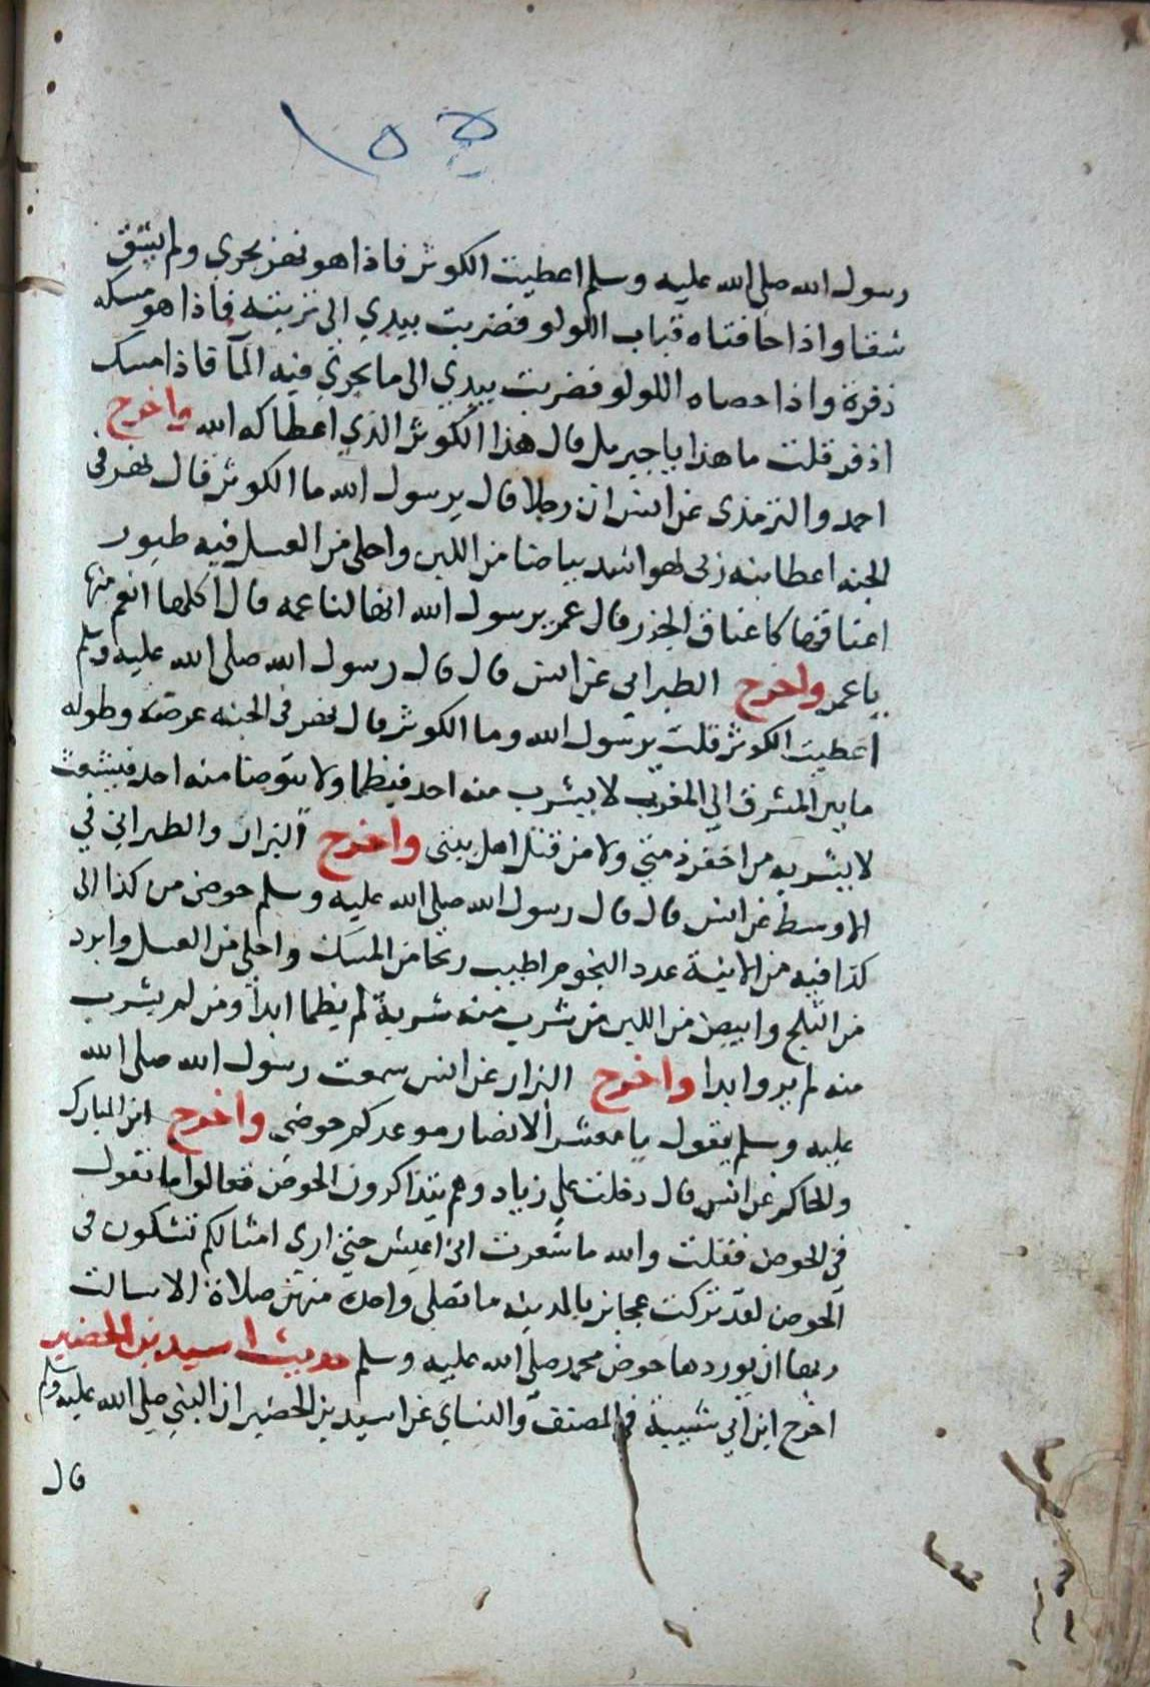 ١٥٥
رسول الله صلي الله عليه وسلم اعطيت الكوثر فاذا هو نهر يجري ولم يشق
شقا واذا حافتاه قباب اللولو فضربت بيدي الى تربته فاذا هو مسكه
ذفرة واذا حصاه اللولو فضربت بيدي الى ما يجري فيه المآ فاذا مسك
اذفر قلت ما هذا يا جبريل قال هذا الكوثر الذي اعطاكه الله واخرج
احمد والترمذى عن انس ان رجلا قال يرسول الله ما الكوثر قال نهر فى
الجنه اعطانيه ربى لهو اشد بياضا من اللبن واحلى من العسل فيه طيور
اعناقها كاعناق الجزر قال عمر يرسول الله انها لناعمه قال اكلها انعم منها
ياعمر واخرج الطبراني عن انس قال قال رسول الله صلى الله عليه وسلم
اعطيت الكوثر قلت يرسول الله وما الكوثر قال نهر فى الجنه عرضه وطوله
ما بين المشرق الي المغرب لا يشرب منه احد فيظما ولا يتوضا منه احد فيشعث
لا يشربه من اخفر ذمتي ولا من قتل اهل بيتى واخرج البزار والطبراني في
الاوسط عن انس قال قال رسول الله صلي الله عليه وسلم حوضى من كذا الى
كذا فيه من الانية عدد النجوم اطيب ريحا من المسك واحلى من العسل وابرد
من الثلج وابيض من اللبن من شرب منه شربة لم يظما ابدا ومن لم يشرب
منه لم يرو ابدا واخرج البزار عن انس سمعت رسول الله صلى الله
عليه وسلم يقول يا معشر الانصار موعدكم حوضي واخرج ابن المبارك
والحاكم عن انس قال دخلت علي زياد وهم يتذاكرون الحوض فقالوا ما تقول
في الحوض فقلت والله ما شعرت اني اعيش حتي ارى امثالكم تشكون فى
الحوض لقد تركت عجايز بالمدينه ما تصلى واحدة منهن صلاة الا سالت
ربها ان يوردها حوض محمد صلي الله عليه وسلم حديث اسيد بن الحضير
اخرج ابن ابي شيبة في المصنف والنساي عن اسيد بن الحضير ان النبي صلي الله عليه وسلم
قال